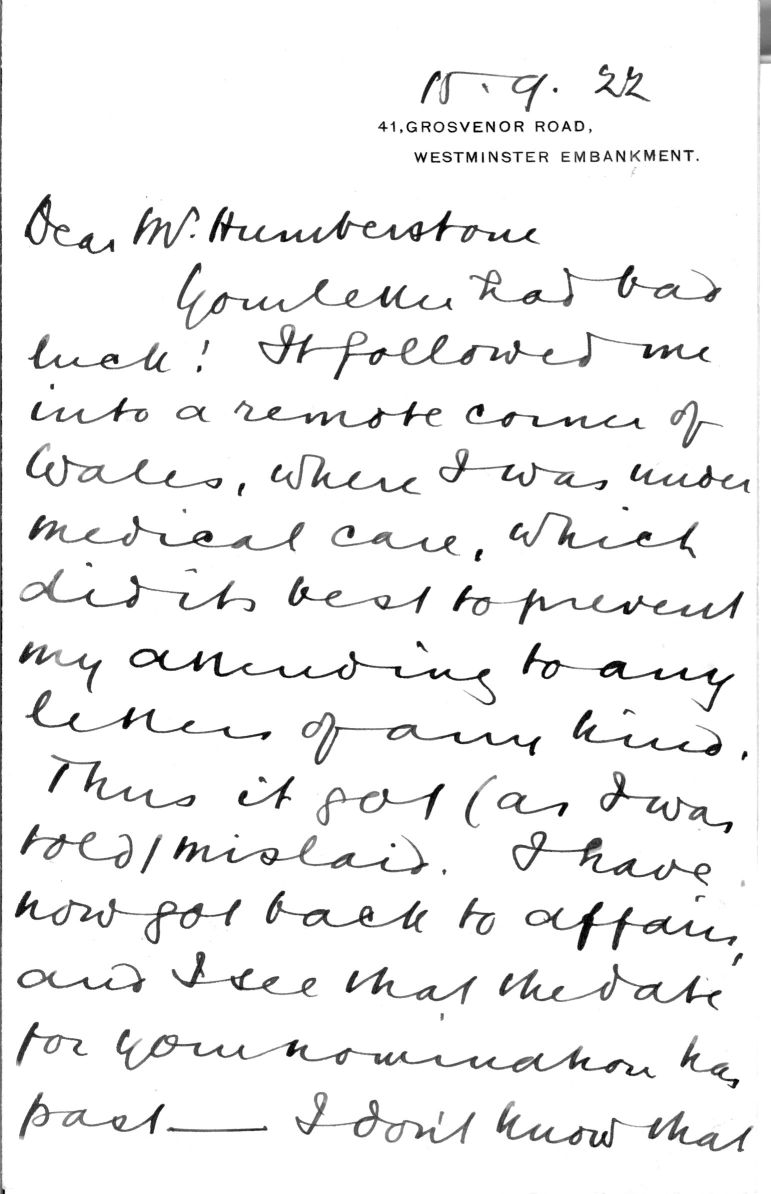 15.9.22
41,GROSVENOR ROAD,
WESTMINSTER EMBANKMENT.
Dear Mr. Humberstone
Your letter had bad
luck! It followed me
into a remote corner of
Wales, where I was under
medical care, which
did its best to prevent
my attending to any
letters of any kind.
Thus it got (as I was
told) mislaid. I have
now got back to affairs,
and I see that the date
for your nomination has
past — I don't know that